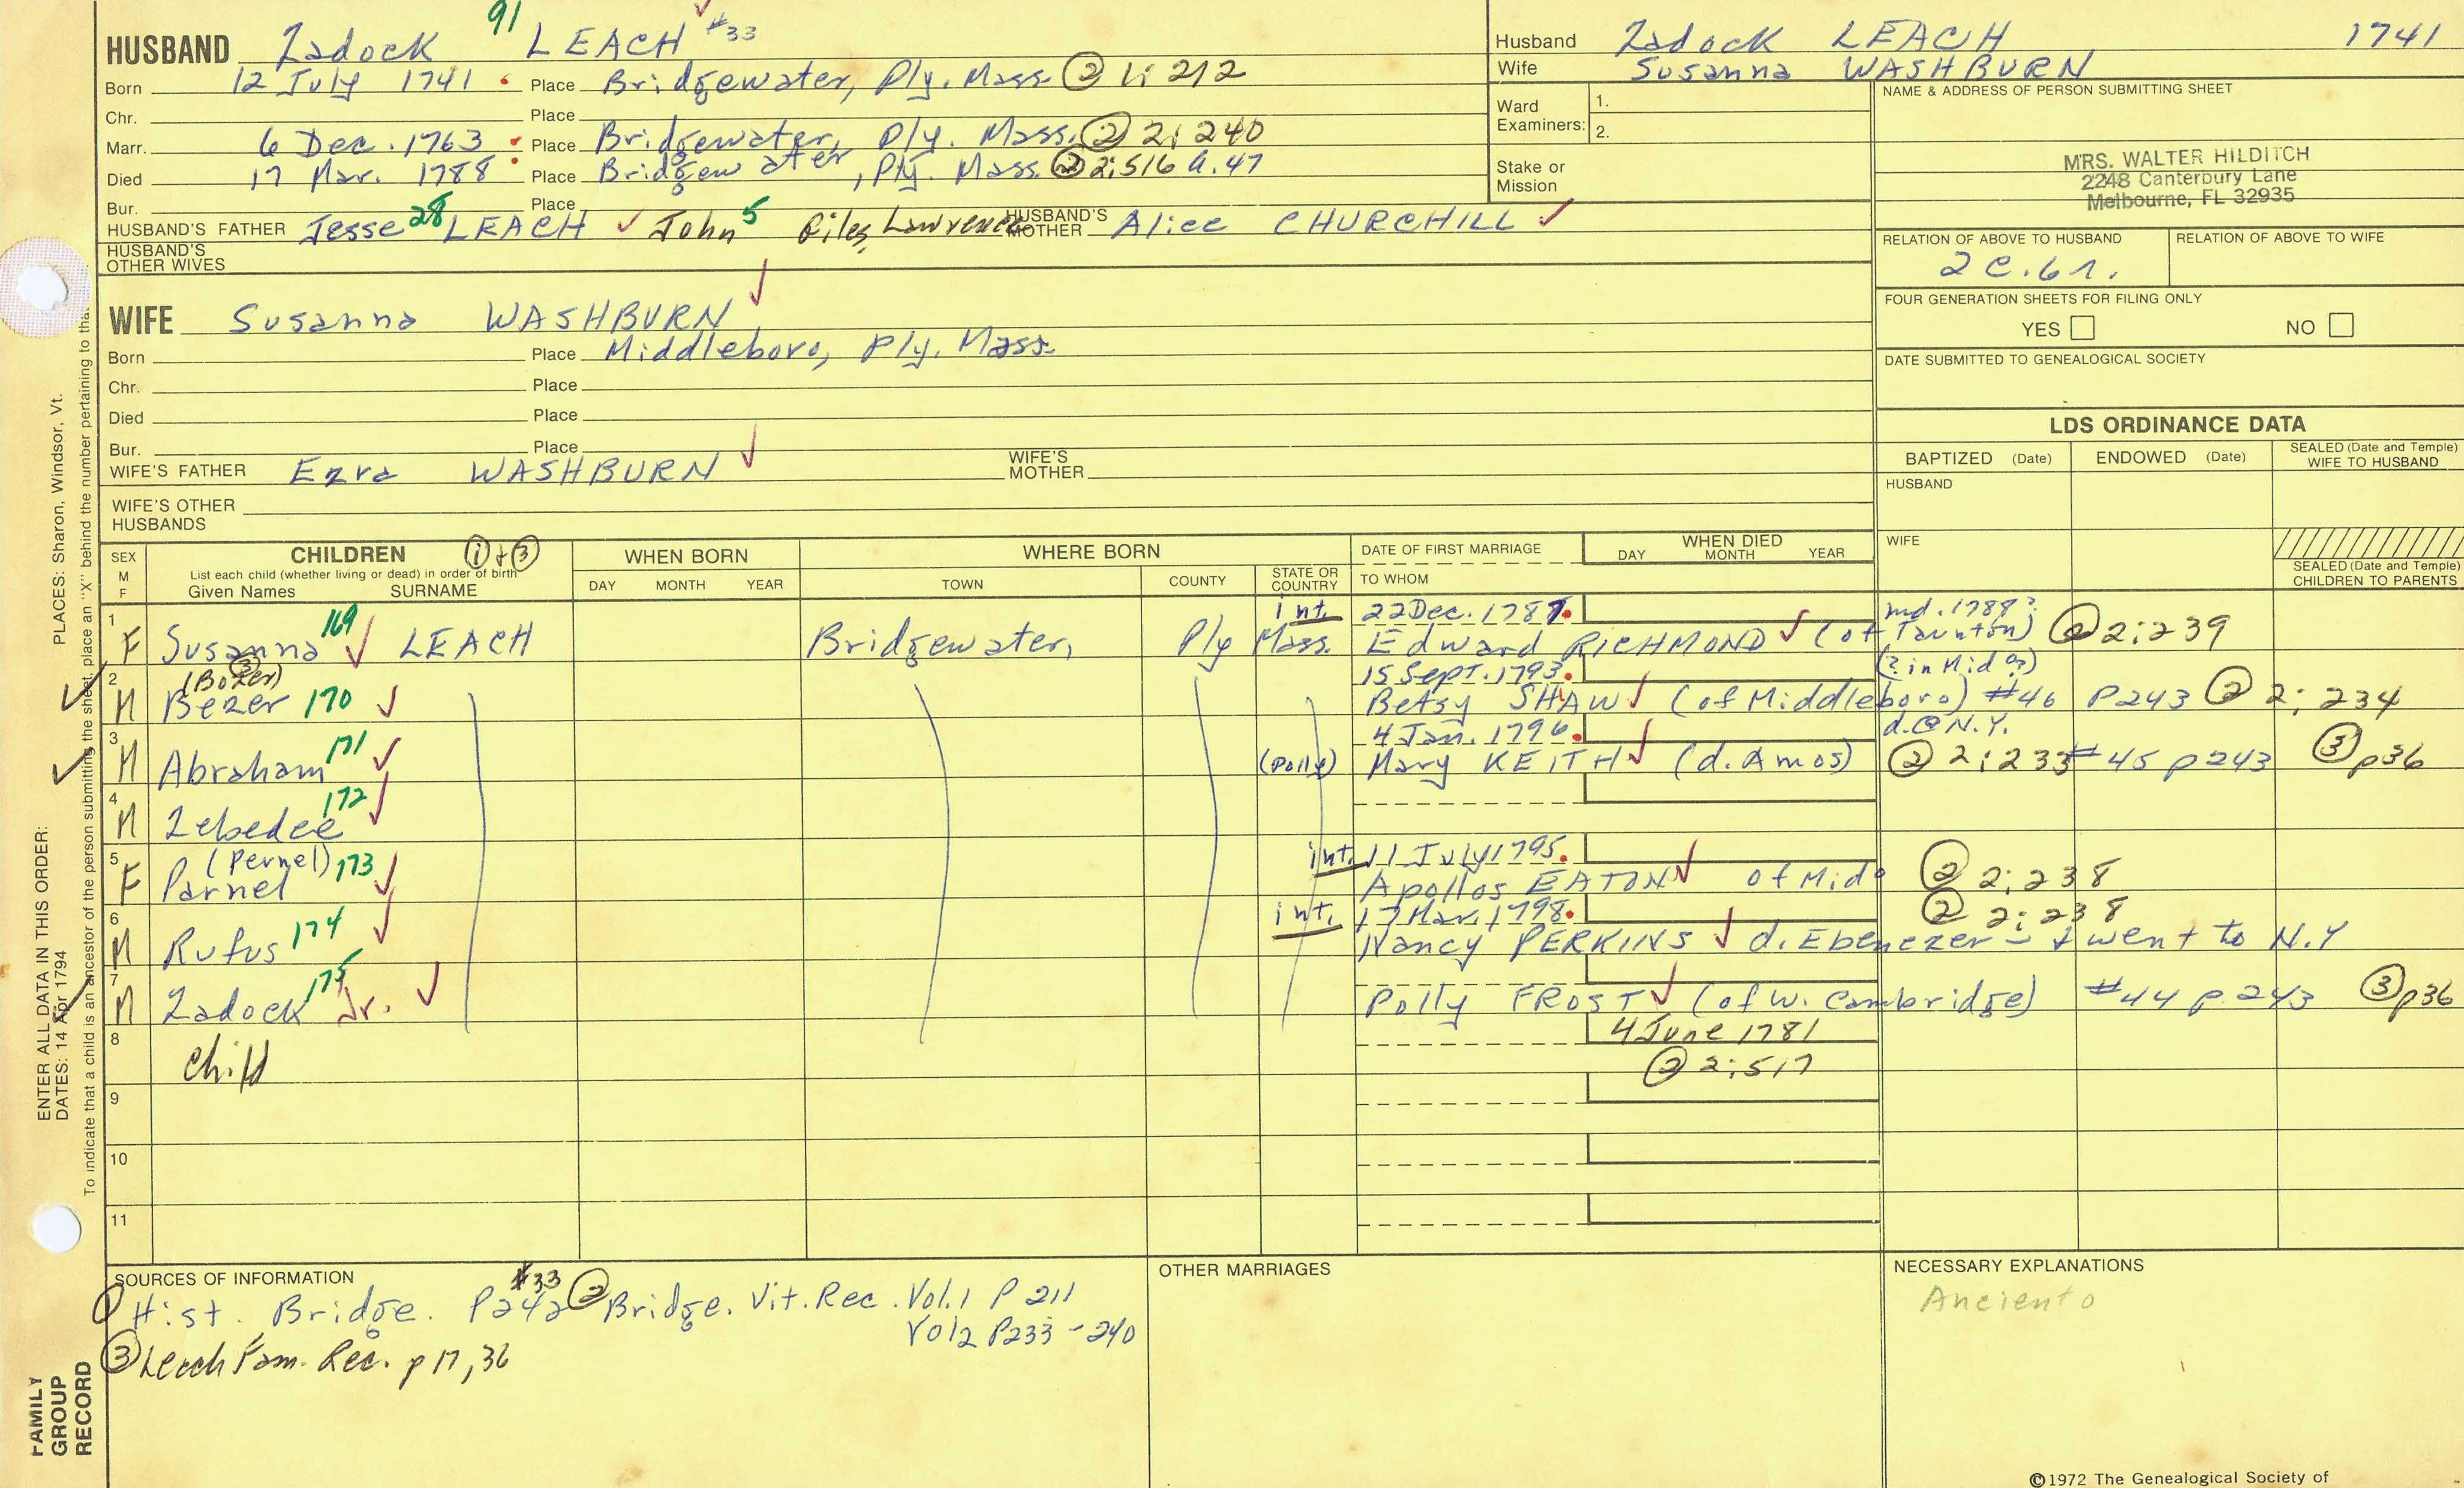 91
HUSBAND Zadock LEACH #33
Born 12 July 1741 Place Bridgewater, Ply. Mass. ② 1: 212
Chr. Place
Marr. 6 Dec. 1763 Place Bridgewater, Ply. Mass. ② 2: 240
Died 17 Mar. 1788 Place Bridgewater, Ply. Mass. ② 2:516 a.47
Bur. Place
HUSBAND'S FATHER Jesse 28 LEACH John 5 Giles, Lawrence HUSBAND'S MOTHER Alice CHURCHILL
HUSBAND'S OTHER WIVES
WIFE Susanna WASHBURN
Born Place Middleboro, Ply. Mass.
Chr. Place
Died Place
Bur. Place
WIFE'S FATHER Ezra WASHBURN WIFE'S MOTHER
WIFE'S OTHER HUSBANDS
Husband Zadock LEACH 1741
Wife Susanna WASHBURN
Ward Examiners: 1.
2.
Stake or Mission
NAME & ADDRESS OF PERSON SUBMITTING SHEET
MRS. WALTER HILDITCH
2248 Canterbury Lane
Melbourne, FL 32935
RELATION OF ABOVE TO HUSBAND RELATION OF ABOVE TO WIFE
2c.6r.
FOUR GENERATION SHEETS FOR FILING ONLY
YES NO
DATE SUBMITTED TO GENEALOGICAL SOCIETY
LDS ORDINANCE DATA
BAPTIZED (Date) ENDOWED (Date) SEALED (Date and Temple) WIFE TO HUSBAND
HUSBAND
WIFE
SEALED (Date and Temple) CHILDREN TO PARENTS
SEX M F
CHILDREN ① + ③
List each child (whether living or dead) in order of birth
Given Names SURNAME
WHEN BORN
DAY MONTH YEAR
WHERE BORN
TOWN COUNTY STATE OR COUNTRY
DATE OF FIRST MARRIAGE
TO WHOM
WHEN DIED
DAY MONTH YEAR
int. 22 Dec. 1787. md. 1788?
1 F Susanna 169 LEACH Bridgewater, Ply Mass. Edward RICHMOND (of Taunton) ② 2:239
(Bozer) ③ 15 Sept. 1793. (? in Mido?)
2 M Bezer 170 Betsy SHAW (of Middleboro) #46 P243 ② 2: 234
4 Jan. 1796. d.@N.Y.
3 M Abraham 171 (Polly) Mary KEITH (d. Amos) ② 2:233 #45 p243 ③ p36
4 M Zebedee 172
(Pernel) int. 11 July 1795.
5 F Parnel 173 Apollos EATON of Mido ② 2:238
int. 17 Mar. 1798. ② 2:238
6 M Rufus 174 Nancy PERKINS d. Ebenezer - & went to N.Y
7 M Zadock 175 Jr. Polly FROST (of W. Cambridge) #44 p.243 ③ p36
8 Child 4 June 1781
② 2:517
9
10
11
SOURCES OF INFORMATION
① Hist. Bridge. P242 #33 ② Bridge. Vit. Rec. Vol.1 P 211
Vol2 P233-240
③ Leach Fam. Rec. p 17, 36
OTHER MARRIAGES
NECESSARY EXPLANATIONS
©1972 The Genealogical Society of
ENTER ALL DATA IN THIS ORDER:
PLACES: Sharon, Windsor, Vt.
DATES: 14 Apr 1794
To indicate that a child is an ancestor of the person submitting the sheet, place an "X" behind the number pertaining to that
FAMILY GROUP RECORD